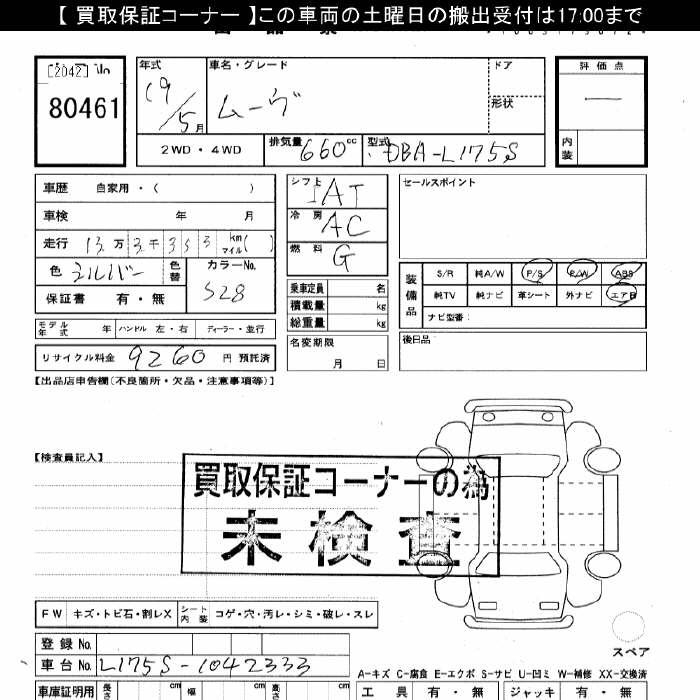 【 買取保証コーナー 】この車両の土曜日の搬出受付は17:00まで
80461
年式
19/5月
車名・グレード
ムーヴ
ドア
形状
評価点
―
内装
2WD・4WD
排気量 660cc
型式 DBA-L175S
車歴 自家用・( )
車検 年 月
走行 13万 3千 353 km マイル( )
色 シルバー 色替
カラーNo. S28
保証書 有・無
シフト IAT
冷房 AC
燃料 G
乗車定員 名
積載量 kg
総重量 kg
セールスポイント
装備品
S/R 純A/W P/S P/W ABS
純TV 純ナビ 革シート 外ナビ エアB
ナビ型番:
モデル年式 年 ハンドル 左・右 ディーラー・並行
名変期限 月 日
後日品
リサイクル料金 9260 円 預託済
【出品店申告欄(不良箇所・欠品・注意事項等)】
【検査員記入】
買取保証コーナーの為
未検査
FW キズ・トビ石・割レX シート内装 コゲ・穴・汚レ・シミ・破レ・スレ
スペア
登録 No.
車台 No. L175S-1042333
A-キズ C-腐食 E-エクボ S-サビ U-凹ミ W-補修 XX-交換済
車庫証明用 長さ cm 幅 cm 高さ cm
工具 有・無 ジャッキ 有・無